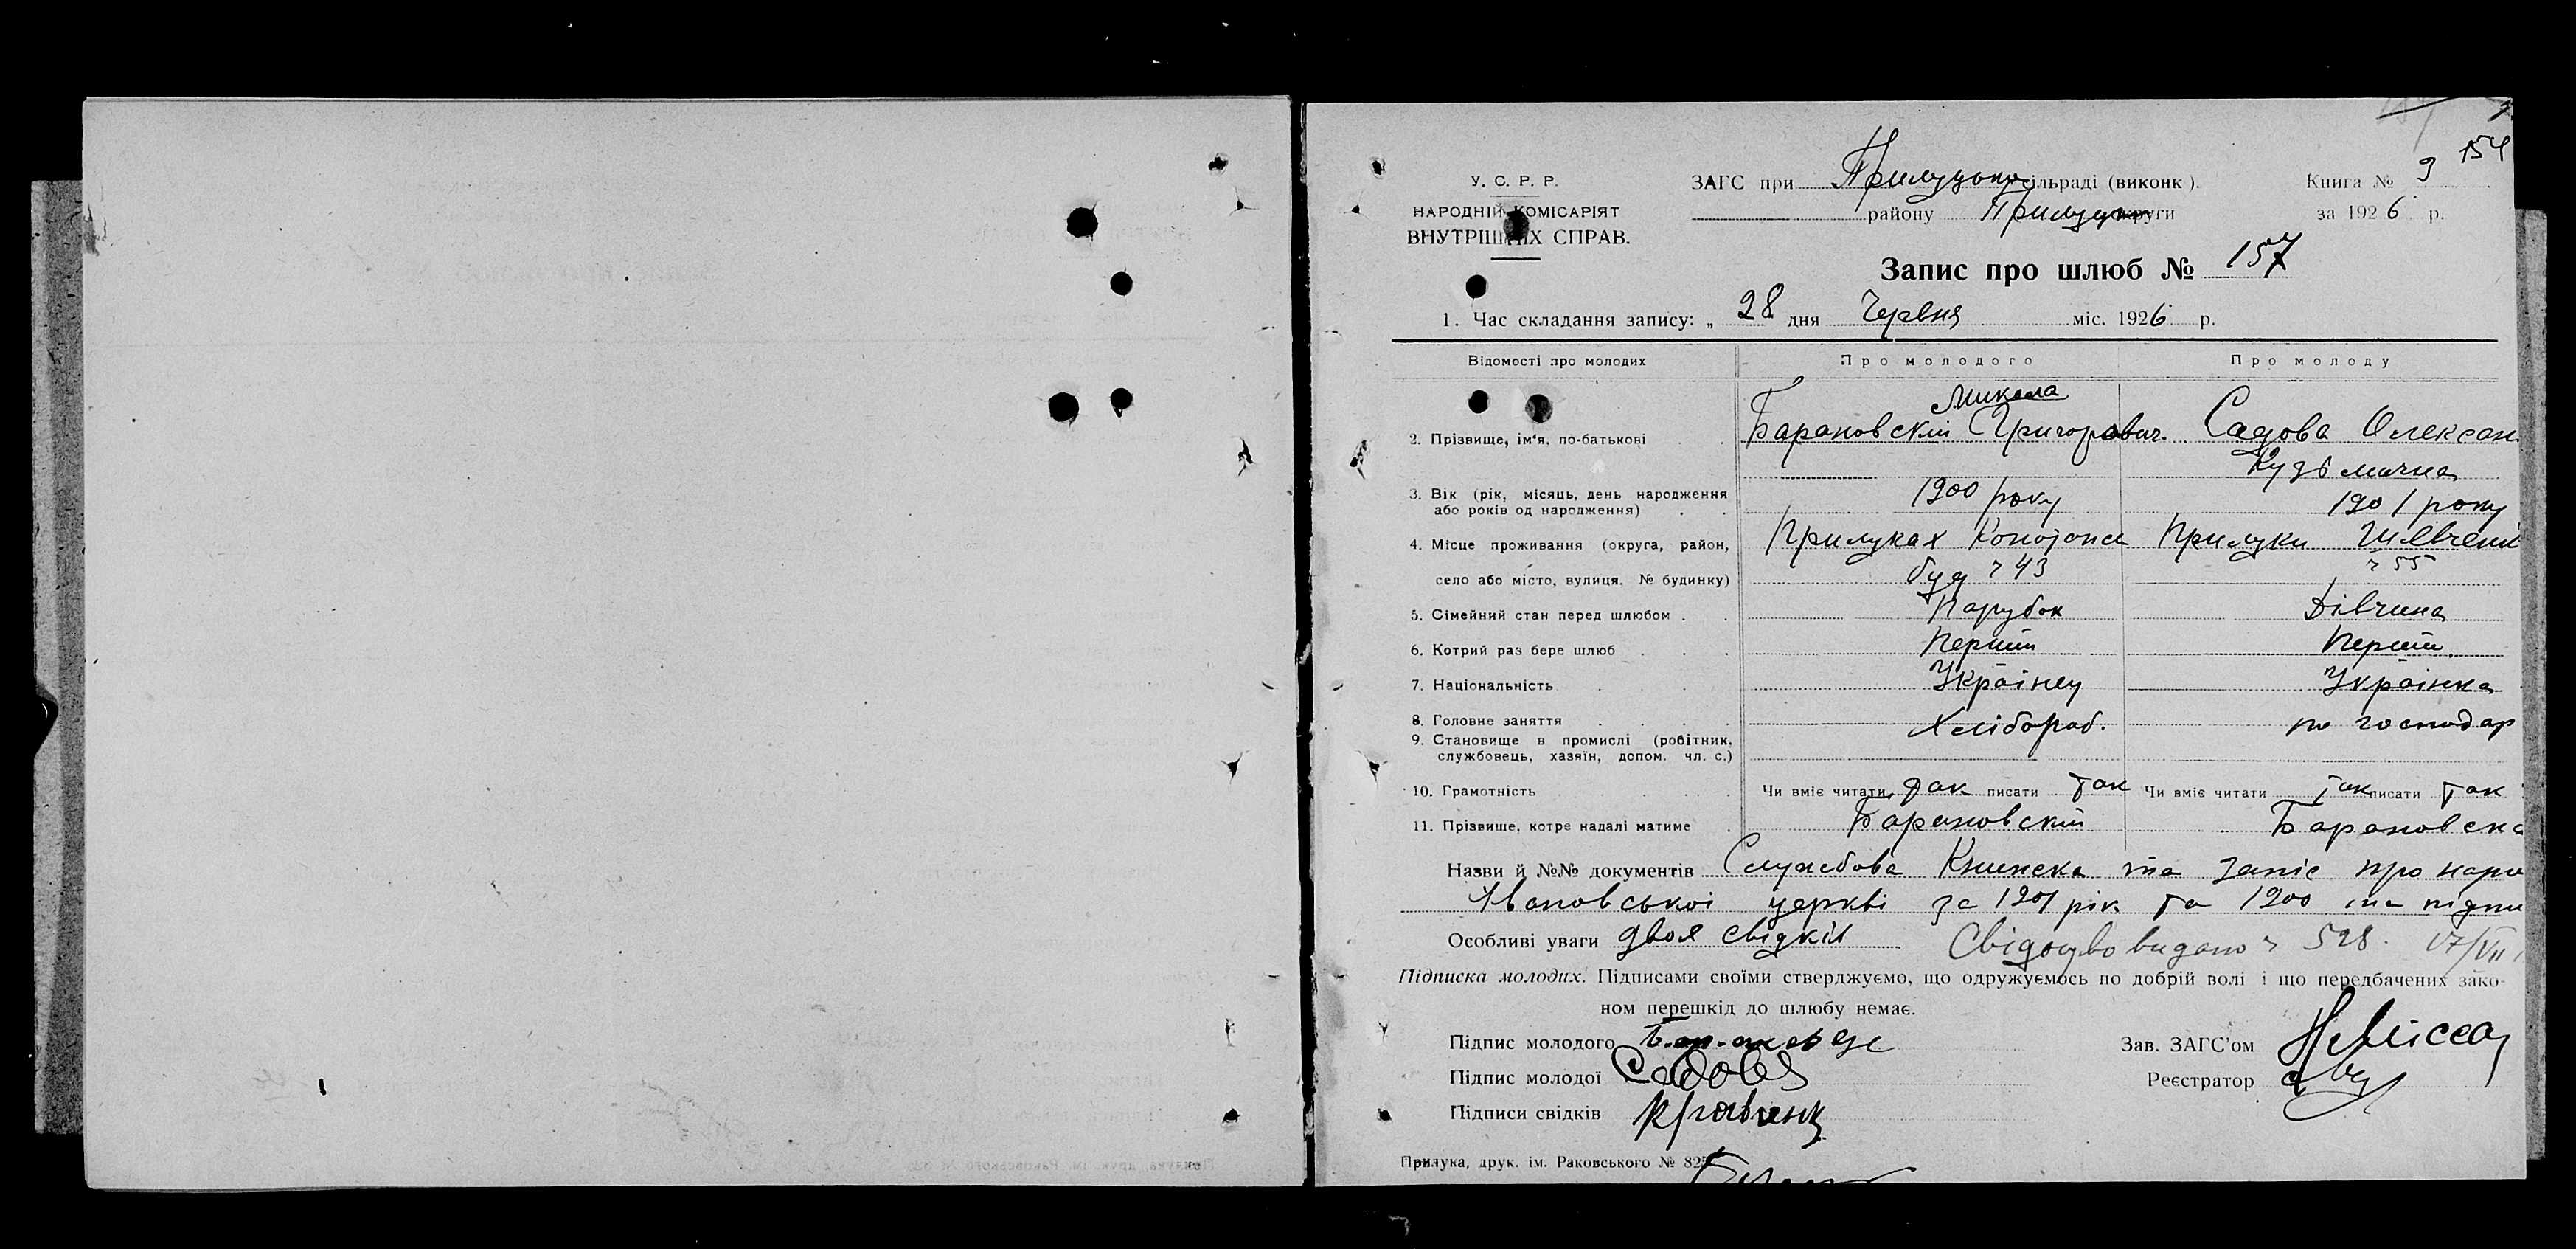 154
У. С. Р. Р.
НАРОДНІЙ КОМІСАРІЯТ
ВНУТРІШНІХ СПРАВ.
ЗАГС при Прилуцько сільраді (виконк).
району Прилуцьк округи
Книга № 3
за 1926 р.
Запис про шлюб № 157
1. Час складання запису: „ 28 дня Червня міс. 1926 р.
Відомості про молодих Про молодого Про молоду
Микола
2. Прізвище, ім'я, по-батькові Барановский Григорович. Садова Олексан
Кузьмична
3. Вік (рік, місяць, день народження 1900 року 1901 року
або років од народження)
4. Місце проживання (округа, район, Прилуках Конотопа Прилуки Шевченк
село або місто, вулиця, № будинку) буд 43 55
5. Сімейний стан перед шлюбом Парубок Дівчина
6. Котрий раз бере шлюб Перший Перший.
7. Національність Українец Українка
8. Головне заняття Хлібороб. по господар
9. Становище в промислі (робітник,
службовець, хазяїн, допом. чл. с.)
10. Грамотність Чи вміє читати так писати так Чи вміє читати так писати так
11. Прізвище, котре надалі матиме Барановский Барановска
Назви й №№ документів Службова Книжска та запіс про наро
Івановської церкві за 1901 рік та 1900 та підпи
Особливі уваги двоя свідків Свідоцтво видано 528. 17/VII
Підписка молодих. Підписами своїми стверджуємо, що одружуємось по добрій волі і що передбачених зако-
ном перешкід до шлюбу немає.
Підпис молодого
Підпис молодої Садова
Підписи свідків Кравченк
Зав. ЗАГС'ом
Реєстратор
Прилука, друк. ім. Раковського № 825